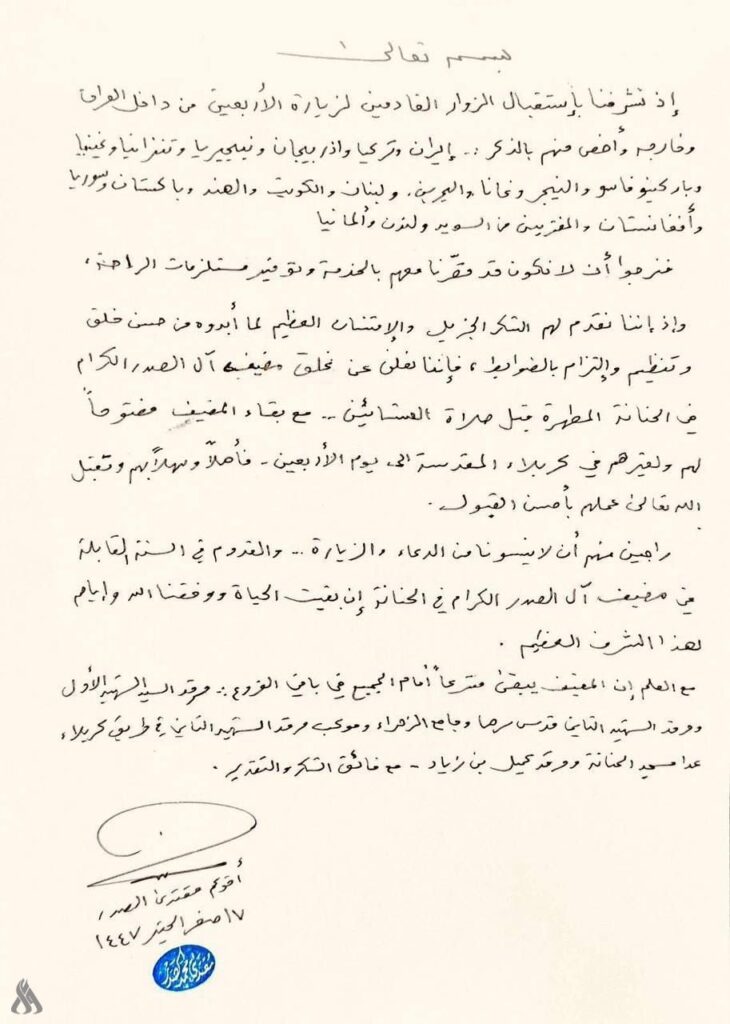 بسمه تعالى
إذ تشرفنا بإستقبال الزوار القادمين لزيارة الأربعين من داخل العراق
وخارجه وأخص منهم بالذكر :.. إيران وتركيا واذربيجان ونيجيريا وتنزانيا وغينيا
وباركينو فاسو والنيجر وغانا والبحرين. ولبنان والكويت والهند وباكستان وسوريا
وأفغانستان والمغتربين من السويد ولندن وألمانيا
فنرجوا أن لا نكون قد قصّرنا معهم بالخدمة وتوفير مستلزمات الراحة،
وإذ إننا نقدم لهم الشكر الجزيل والإمتنان العظيم لما أبدوه من حسن خلق
وتنظيم وإلتزام بالضوابط، فإننا نعلن عن غلق مضيف آل الصدر الكرام
في الحنانة المطهرة قبل صلاة العشائين .. مع بقاء المضيف مفتوحاً
لهم ولغيرهم في كربلاء المقدسة الى يوم الأربعين - فأهلاً وسهلاً بهم وتقبل
الله تعالى عملهم بأحسن القبول.
راجين منهم أن لا ينسونا من الدعاء والزيارة .. والقدوم في السنة القابلة
في مضيف آل الصدر الكرام في الحنانة إن بقيت الحياة ووفقنا الله وإياهم
لهذا الشرف العظيم.
مع العلم إن المضيف يبقى مشرعاً أمام الجميع في باقي الفروع :. مرقد السيد الشهيد الأول
ومرقد الشهيد الثاني قدس سرهما وجامع الزهراء وموكب مرقد الشهيد الثاني في طريق كربلاء
عدا مسجد الحنانة ومرقد كميل بن زياد - مع فائق الشكر والتقدير.
أخوكم مقتدى الصدر
١٧ صفر الخير ١٤٤٧